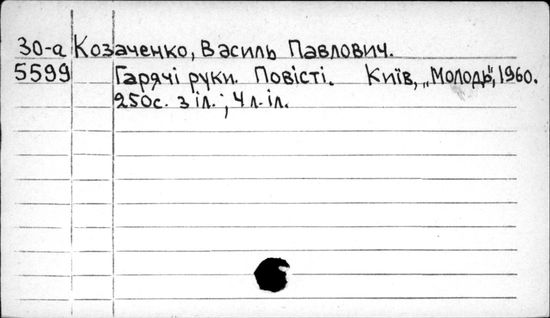 30-а Козаченко, Василь Павлович.
5599 Гарячі руки. Повісті. Київ, „Молодь", 1960.
250с. з іл.; 4 л. іл.